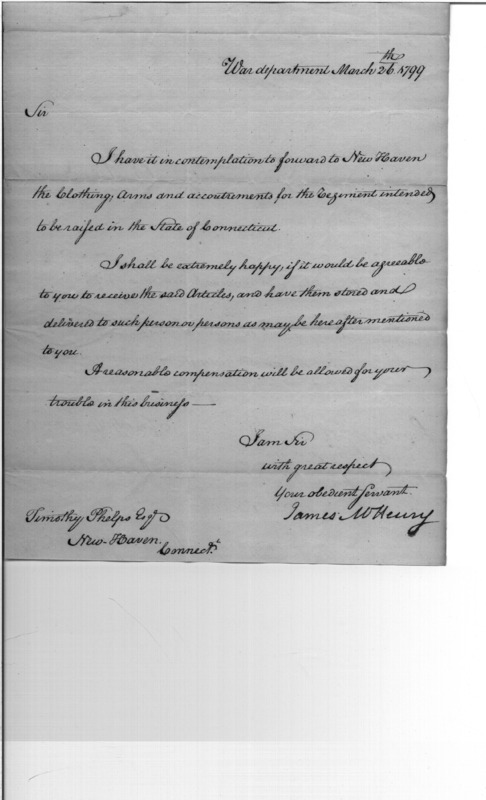 War department March 26th 1799
Sir
I have it in contemplation to forward to New Haven
the Clothing, Arms and accoutrements for the Regiment intended
to be raised in the State of Connecticut.
I shall be extremely happy, if it would be agreeable
to you to receive the said Articles, and have them stored and
delivered to such person or persons as may be hereafter mentioned
to you.
A reasonable compensation will be allowed for your
trouble in this business —
I am Sir
with great respect
Your obedient Servant
James McHenry
Timothy Phelps Esqr
New-Haven.
Connectt